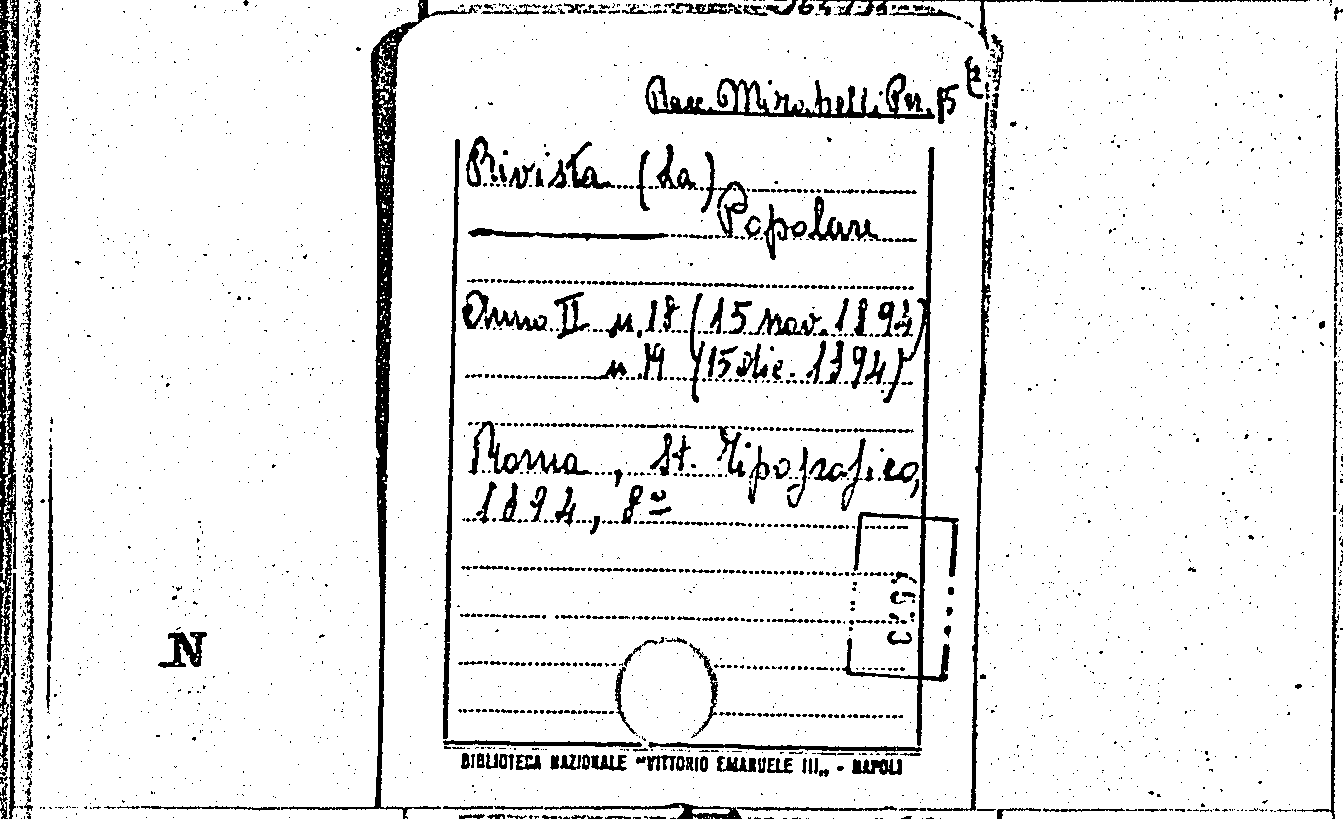 Racc. Mirabelli Per. 15
Rivista (La)
Popolare
Anno II n. 18 (15 nov. 1894)
n. 19 (15 dic. 1894)
Roma, St. Tipografico,
1894, 8º
N
BIBLIOTECA NAZIONALE "VITTORIO EMANUELE III„ - NAPOLI